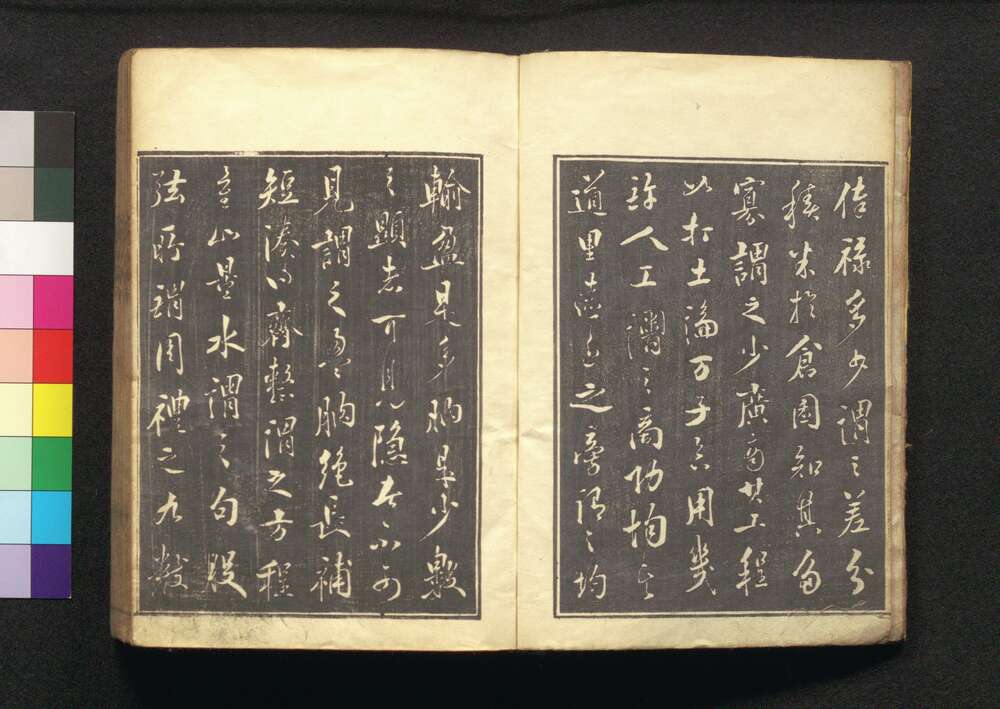 俸祿多少謂之差分
積米於倉囷知其多
寡謂之少廣商其工程
以打土論方子言用幾
許人工謂之商功均其
道里遠近之旁謂之均
輸盈是多朒是少數
之顯者可見隱者不可
見謂之盈朒絶長補
短湊得齊整謂之方程
言山量水謂之句股
所謂周禮之九數